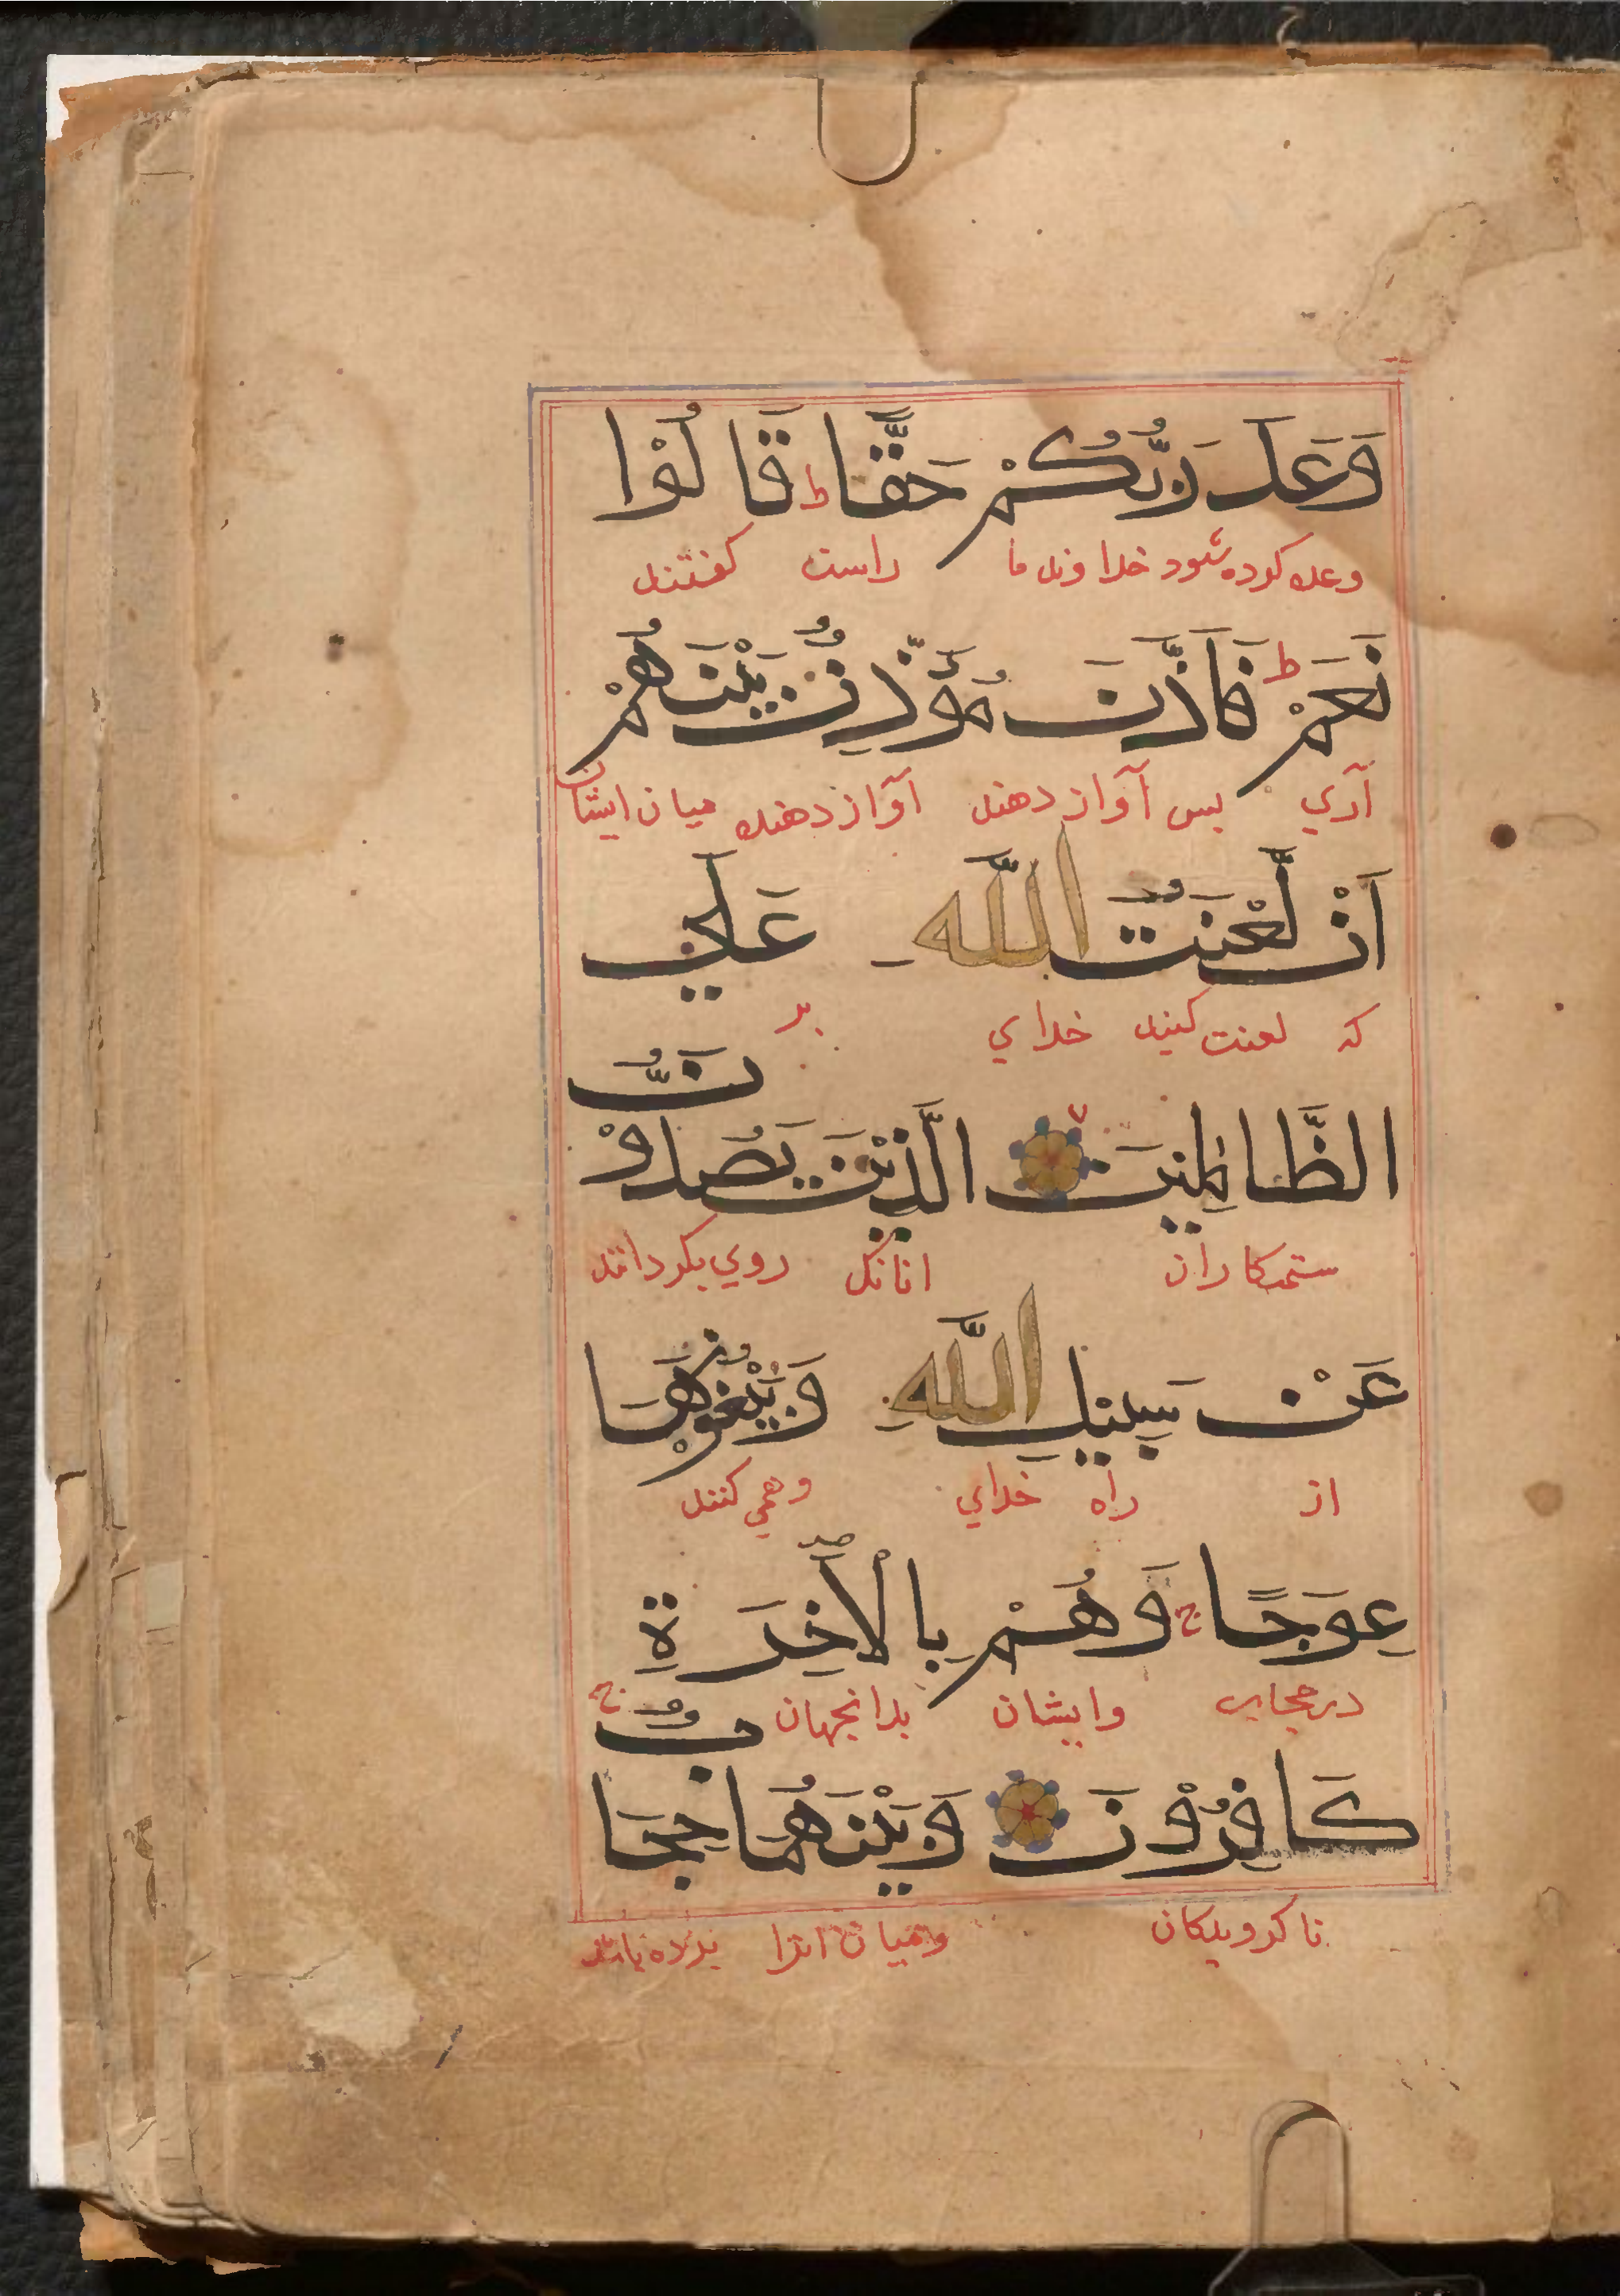 وَعَدَ رَبُّكُمْ حَقًّا ط قَالُوْا
وعده کرده شود خداوند ما راست کفتند
نَعَمْ ط فَاَذَّنَ مُؤَذِّنٌ بَيْنَهُمْ
آري بس آواز دهند آواز دهنده ميان ايشان
اَنْ لَّعْنَتُ اللّٰهِ عَلَي
که لعنت کنيد خداي بر
الظَّالِمِيْنَ الَّذِيْنَ يَصُدُّوْنَ
ستمکاران انانکه روي بکردانند
عَنْ سَبِيْلِ اللّٰهِ وَيَبْغُوْنَهَا
از راه خداي وهمي کنند
عِوَجًا ج وَهُمْ بِالْاٰخِرَةِ
وايشان بدانجهان
كَافِرُوْنَ وَبَيْنَهُمَا حِجَابٌ ج
نا کرويدکان وميان انرا